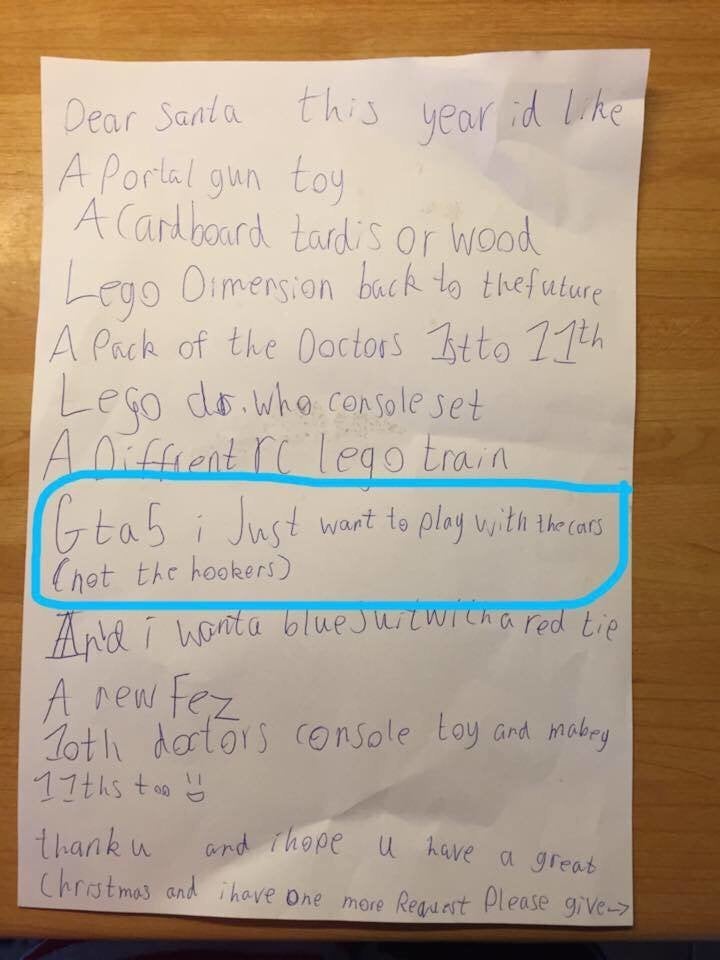 Dear Santa this year id like
A Portal gun toy
A Cardboard tardis or wood
Lego Dimension back to thefuture
A Pack of the Doctors 1stto 11th
Lego dr. who console set
A Diffrent rc lego train
Gta5 i Just want to play with the cars
(not the hookers)
And i wanta blue suitwith a red tie
A new Fez
10th doctors console toy and mabey
11ths too
thank u and ihope u have a great
Christmas and ihave one more Request Please give→